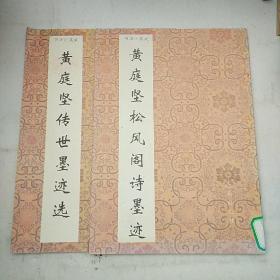 黄庭坚传世墨迹选
黄庭坚松风阁诗墨迹